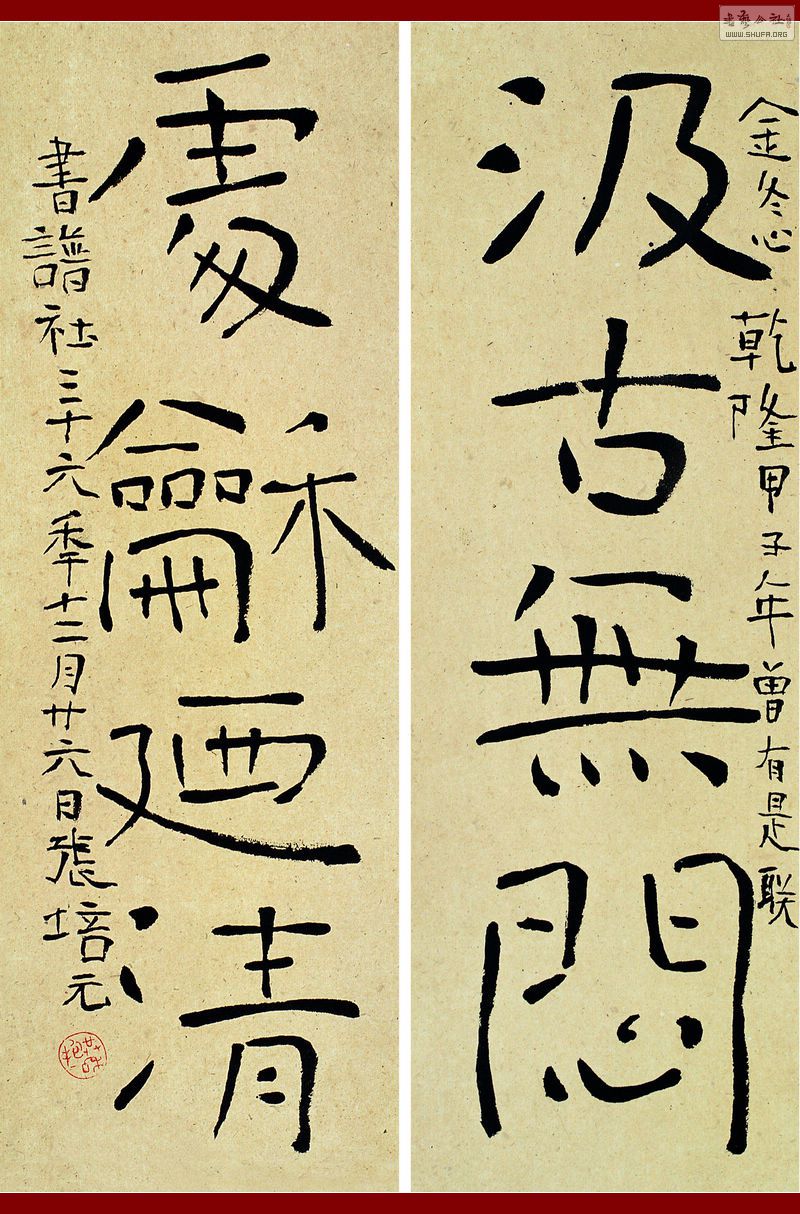 金冬心乾隆甲子年曾有是联
汲古無悶
處龢廼清
書譜社三十六秊十二月廿六日張培元
WWW.SHUFA.ORG